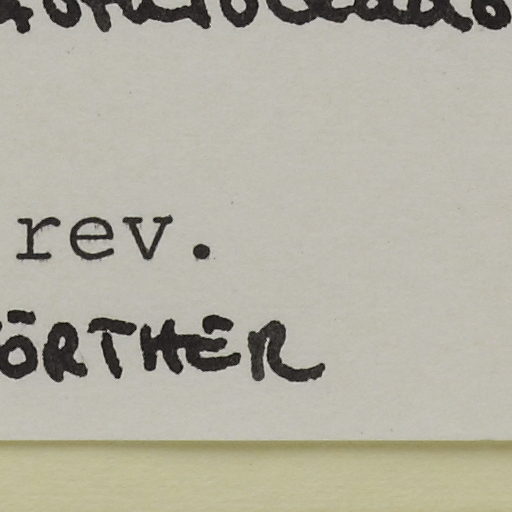 rev.
ÖRTHER